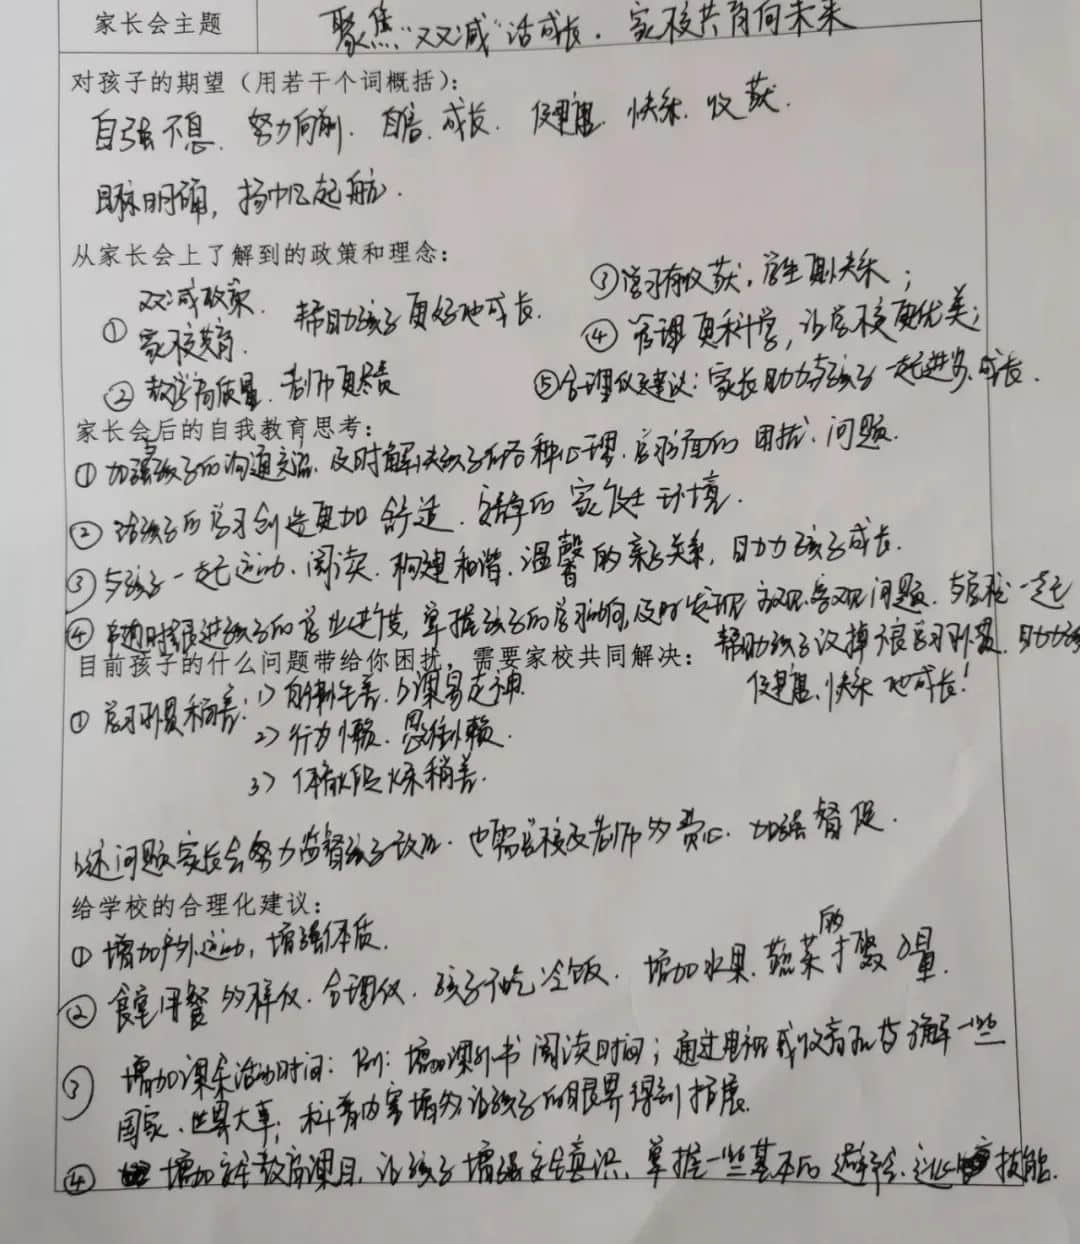 家长会主题
聚焦“双减”话成长．家校共育向未来
对孩子的期望（用若干个词概括）：
自强不息．努力向前．自信．成长．健康．快乐．收获．
目标明确，扬帆起航．
从家长会上了解到的政策和理念：
① 双减政策．
家校共育．
帮助孩子更好地成长．
② 教学高质量．老师更尽责
③ 学习有收获，学生更快乐；
④ 管理更科学，让学校更优美；
⑤ 合理化建议：家长助力与孩子一起进步．成长．
家长会后的自我教育思考：
① 加强与孩子的沟通交流．及时解决孩子的各种心理．学习方面的困扰．问题．
② 给孩子的学习创造更加舒适．安静的家庭环境．
③ 与孩子一起运动．阅读．构建和谐．温馨的亲子关系，助力孩子成长．
④ 随时跟进孩子的学业进度，掌握孩子的学习动向，及时发现主观、客观问题．与学校一起
帮助孩子改掉不良学习习惯．助力孩子
健康、快乐地成长！
目前孩子的什么问题带给你困扰，需要家校共同解决：
① 学习习惯稍差：1）自制力差．上课易走神．
2）行为懒．思维懒．
3）体育锻炼稍差．
上述问题家长会努力监督孩子改正．也需学校及老师的费心．加强督促．
给学校的合理化建议：
① 增加户外运动，增强体质．
② 食堂用餐的样化．合理化．孩子不吃冷饭．增加水果．蔬菜的数量．
③ 增加课余活动时间：例：增加课外书阅读时间；通过电视或收音机等了解一些
国家、世界大事；科普内容增多，让孩子的眼界得到拓展．
④ 增加安全教育课目，让孩子增强安全意识、掌握一些基本的避险、技能．